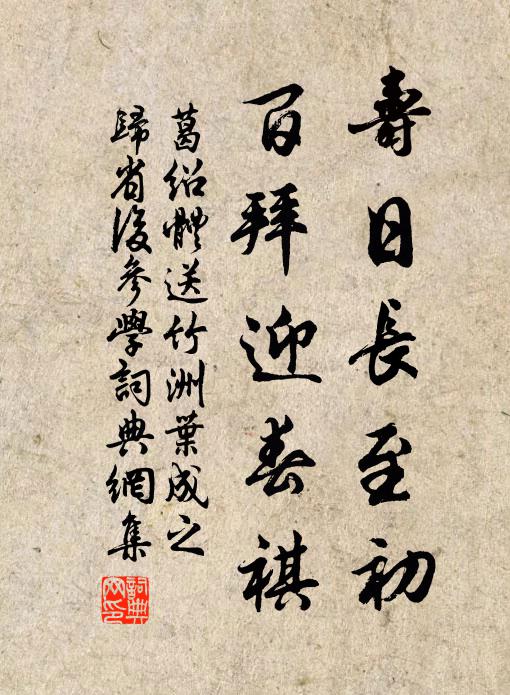 壽日長至初
百拜迎春祺
葛紹體送竹洲葉成之
歸省後參學詞典網集
詞典
网印